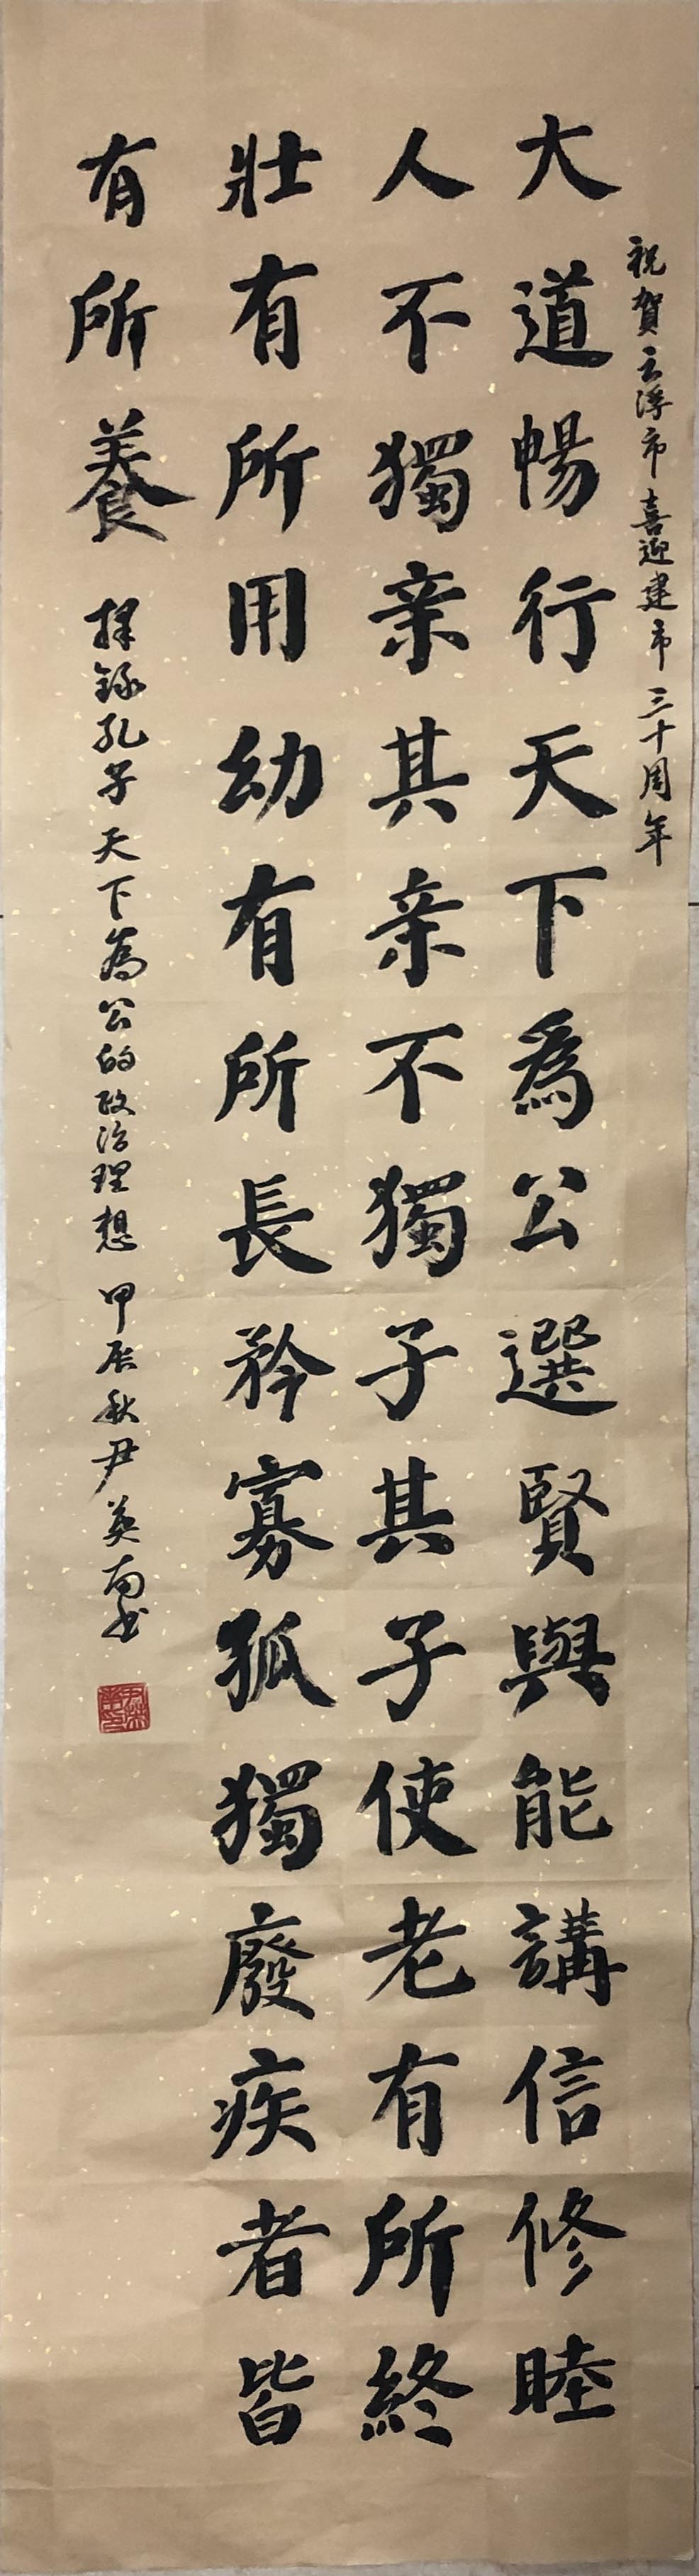 祝賀云浮市喜迎建市三十周年
大道暢行天下為公選賢與能講信修睦
人不獨亲其亲不獨子其子使老有所終
壯有所用幼有所長矜寡孤獨廢疾者皆
有所養
擇錄孔子天下為公的政治理想甲辰秋尹英南书